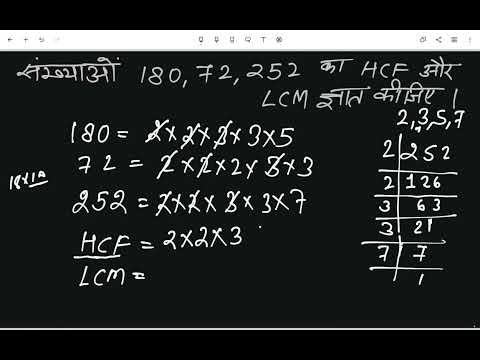 संख्याओं 180, 72, 252 का HCF और
LCM ज्ञात कीजिए ।
180 = 2×2×3×3×5
72 = 2×2×2×3×3
252 = 2×2×3×3×7
HCF = 2×2×3
LCM =
2,3,5,7
2 252
2 126
3 63
3 21
7 7
1